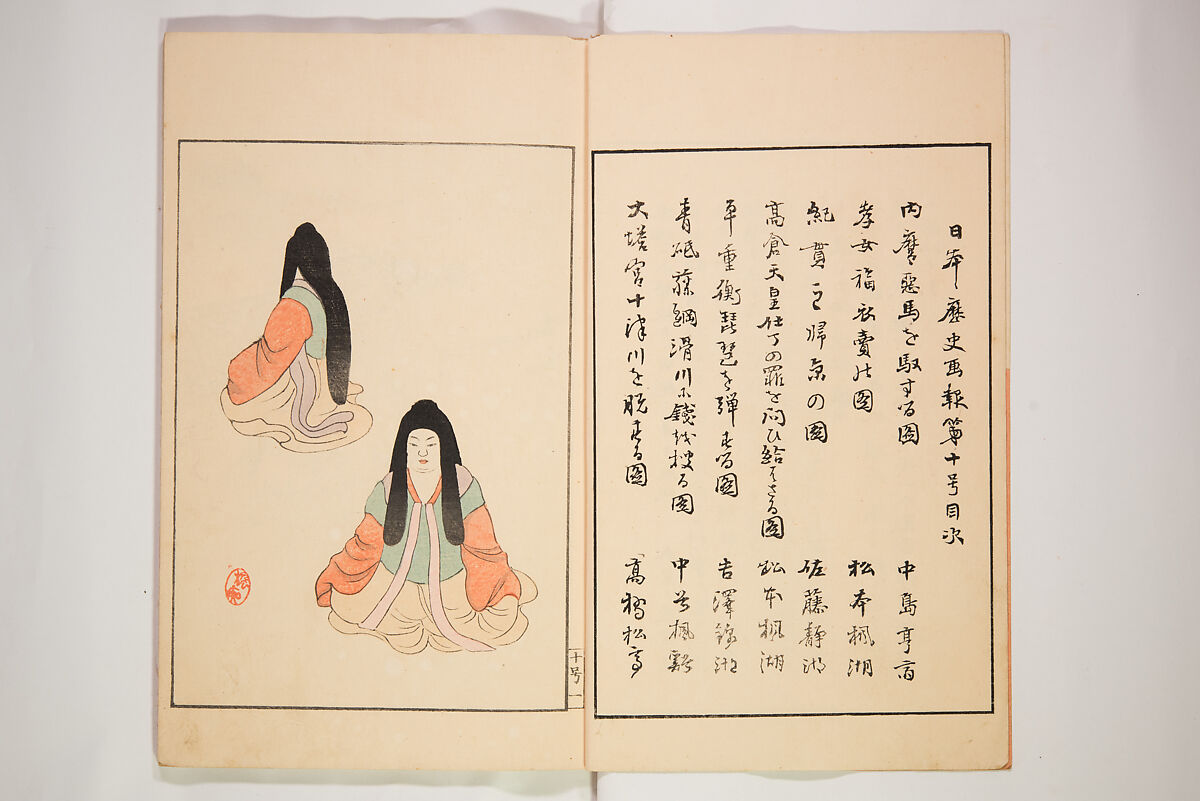 日本歴史画報第十号目次
内麿悪馬を馭する図 中島亨斎
孝女福依賣の図 松本楓湖
紀貫之帰京の図 佐藤静湖
高倉天皇仕丁の罪を問ひ給はさる図 松本楓湖
平重衡琵琶を弾する図 吉澤錦湖
青砥藤綱滑川に銭を捜る図 中島楓谿
大塔宮十津川を脱する図 高橋松亭
十号 一